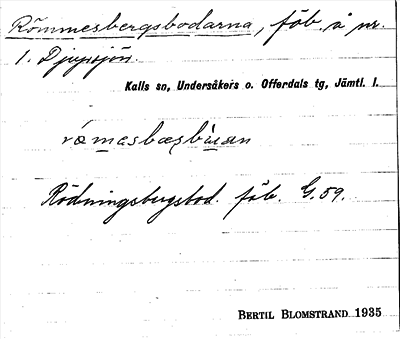 Römmesbergsbodarna, fäb. å nr.
1. Djupsjön.
Kalls sn, Undersåkers o. Offerdals tg, Jämtl. l.
Rödningsbergsbod. fäb. G.59.
BERTIL BLOMSTRAND 1935